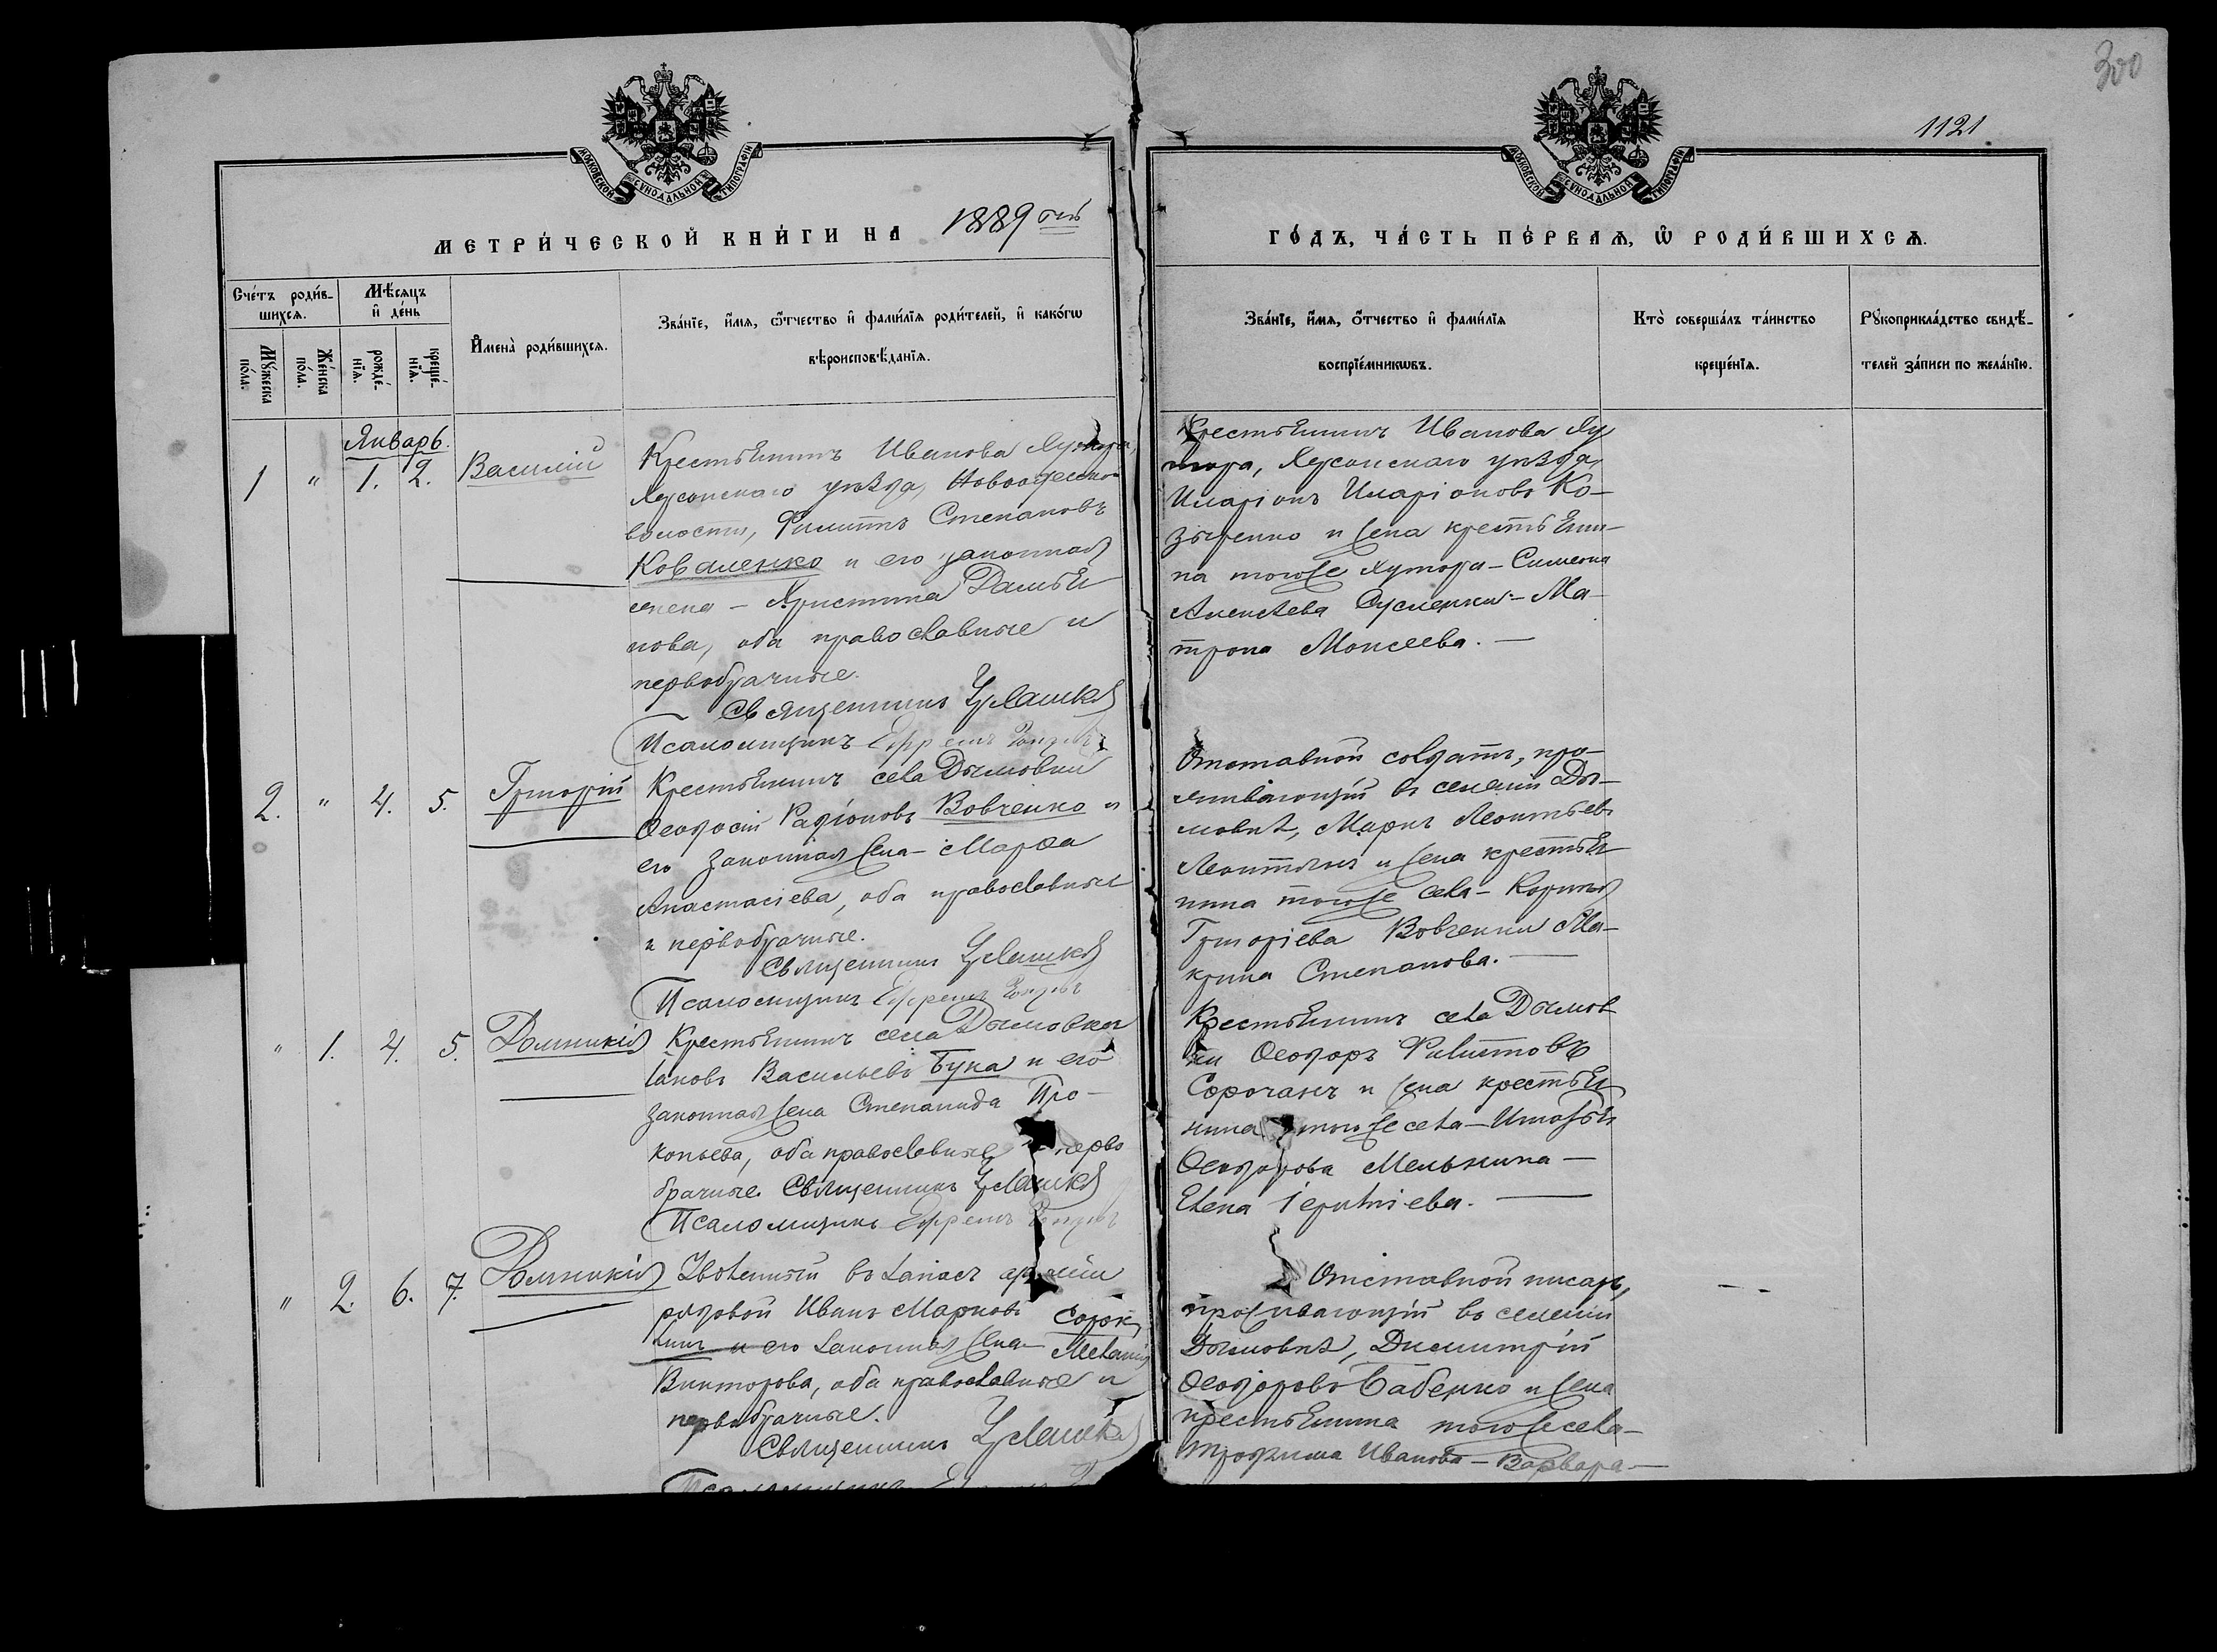 300
1121
МОСКОВСКОЙ СѴНОДАЛЬНОЙ ТИПОГРАФІИ
МОСКОВСКОЙ СѴНОДАЛЬНОЙ ТИПОГРАФІИ
МЕТРИ́ЧЕСКОЙ КНИ́ГИ НА 1889 ой
ГО́ДЪ, ЧА́СТЬ ПЕ́РВАѦ, Ѡ҆ РОДИ́ВШИХСѦ.
Сче́тъ роди́в-
шихсѧ.
Мѣ́сѧцъ
и҆ де́нь
Мꙋ́жеска
по́ла.
Же́нска
по́ла.
рожде́-
нїѧ.
креще́-
нїѧ.
И҆мена̀ роди́вшихсѧ.
Зва́нїе, и҆́мѧ, ѻ҆́тчество и҆ фами́лїѧ роди́телей, и҆ како́гѡ
вѣроисповѣ́данїѧ.
Зва́нїе, и҆́мѧ, ѻ҆́тчество и҆ фами́лїѧ
воспрїе́мникѡвъ.
Кто̀ соверша́лъ та́инство
креще́нїѧ.
Рꙋкоприкла́дство свидѣ́-
телей за́писи по жела́нїю.
Январь.
1 " 1. 2. Василій
Крестьянинъ Иванова Хутора,
Херсонскаго уѣзда, Новоодесской
волости, Филиппъ Степановъ
Коваленко и его законная
жена – Христина Дамья
нова, оба православные и
первобрачные.
Священникъ
Псаломщикъ Ефремъ
Крестьянинъ Иванова Ху
тора, Херсонскаго уѣзда,
Иларіонъ Иларіоновъ Ко-
зыренко и жена крестьяни-
на тогоже хутора – Симеона
Алексѣева – Ма-
трона Моисеева. —
2. " 4. 5. Григорій
Крестьянинъ села Дымовки
Ѳеодосій Радіоновъ Вовченко и
его законная жена – Марѳа
Анастасіева, оба православные
и первобрачные.
Священникъ
Псаломщикъ Ефремъ
Отставной солдатъ, про-
живающій въ селеніи Ды-
мовкѣ, Маркъ Леонтьевъ
Леонтьянъ и жена крестья
нина тогоже села – Корнилія
Григоріева Вовченки Ма-
крина Степанова. —
" 1. 4. 5. Домникія
Крестьянинъ села Дымовки
Іаковъ Васильевъ Бука и его
законная жена Степанида Про-
копьева, оба православные и перво
брачные. Священникъ
Псаломщикъ Ефремъ
Крестьянинъ села Дымов
ки Ѳеодоръ Филипповъ
Сорочанъ и жена крестья
нина тогоже села –
Ѳеодорова Мельника —
Елена —
" 2. 6. 7. Домникія
Уволенный въ запасъ арміи
рядовой Иванъ Марковъ Сорок
кинъ и его законная жена – Меланія
Викторова, оба православные и
первобрачные.
Священникъ
Псаломщикъ
Отставной писарь,
проживающій въ селеніи
Дымовкѣ, Димитрій
Ѳеодоровъ Бабенко и жена
крестьянина тогоже села –
Трофима Иванова – Варвара –